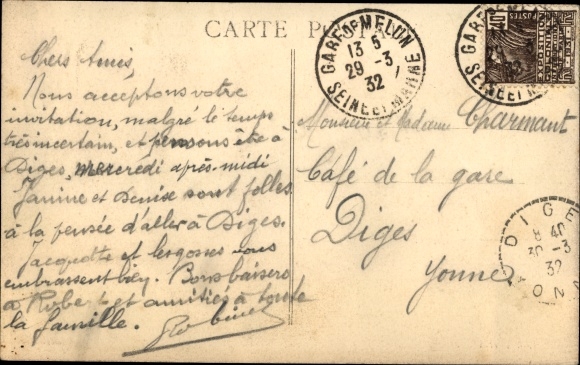 CARTE POSTALE
GARE DE MELUN
13 5
29 -3
32
SEINE ET MARNE
GARE DE MELUN
SEINE ET MARNE
POSTES
Chers Amis,
Nous acceptons votre
invitation, malgré le temps
très incertain, et pensons être à
Diges, mercredi après-midi
Janine et Denise sont folles
à la pensée d'aller à Diges.
Jacquotte et les gosses vous
embrassent bien. Bons baisers
à Robert et amitiés à toute
la famille.
Monsieur et Madame Charmant
Café de la gare
Diges
Yonne
DIGES
8 40
30 -3
32
YONNE